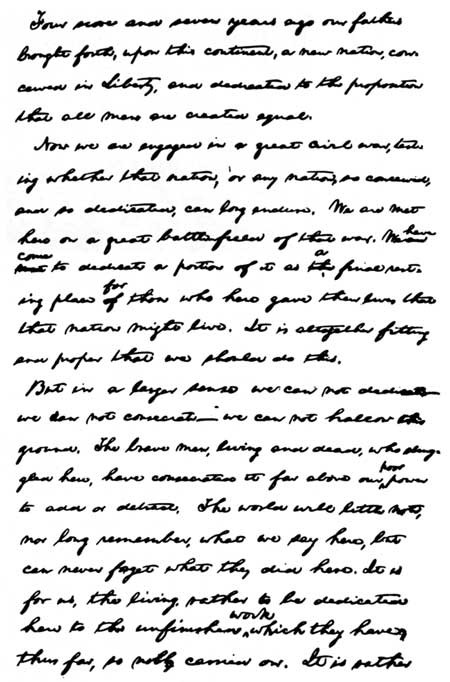 Four score and seven years ago our fathers
brought forth, upon this continent, a new nation, con-
ceived in Liberty, and dedicated to the proposition
that all men are created equal.
Now we are engaged in a great civil war, test-
ing whether that nation, or any nation, so conceived,
and so dedicated, can long endure. We are met
here on a great battle-field of that war. We are have
come met to dedicate a portion of it as the a final rest-
ing place of for those who here gave their lives that
that nation might live. It is altogether fitting
and proper that we should do this.
But in a larger sense we can not dedicate—
we can not consecrate— we can not hallow this
ground. The brave men, living and dead, who strug-
gled here, have consecrated it far above our poor power
to add or detract. The world will little note,
nor long remember, what we say here, but
can never forget what they did here. It is
for us, the living, rather to be dedicated
here to the unfinished work which they have,
thus far, so nobly carried on. It is rather